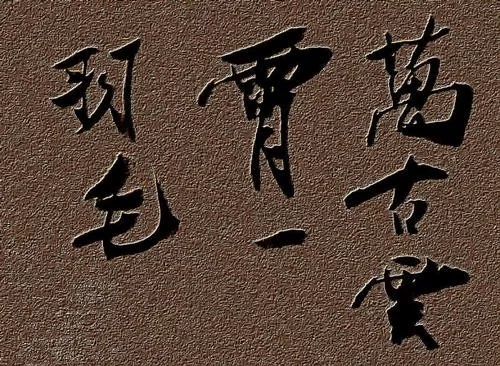 萬古雲
霄一
羽毛